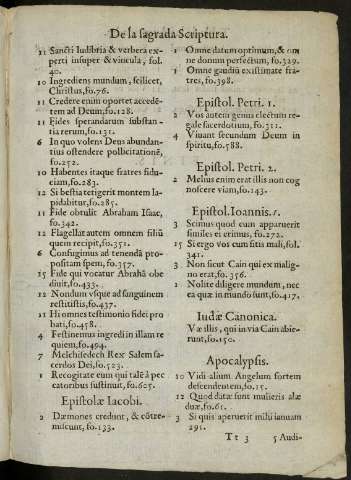 De la sagrada Scriptura.
11 Sancti ludibria & verbera ex-
perti insuper & vincula, fol.
40.
10 Ingrediens mundum, scilicet,
Christus, fo.76.
11 Credere enim oportet acceden-
tem ad Deum, fo.128.
11 Fides sperandarum substan-
tia rerum, fo.131.
6 In quo volens Deus abundan-
tius ostendere pollicitationē,
fo.252.
10 Habentes itaque fratres fidu-
ciam, fo.283.
12 Si bestia tetigerit montem la-
pidabitur, fo.285.
11 Fide obtulit Abraham Isaac,
fo.342.
12 Flagellat autem omnem filiū
quem recipit, fo.351.
6 Confugimus ad tenendā pro-
positam spem, fo.357.
15 Fide qui vocatur Abrahā obe
diuit, fo.433.
12 Nondum vsque ad sanguinem
restitistis, fo.437.
11 Hi omnes testimonio fidei pro
bati, fo.458.
4 Festinemus ingredi in illam re
quiem, fo.494.
7 Melchisedech Rex Salem sa-
cerdos Dei, fo.523.
1 Recogitate eum qui talē à pec
catoribus sustinuit, fo.605.
Epistolæ Iacobi.
2 Dæmones credunt, & cōtre-
miscunt, fo.133.
1 Omne datum optimum, & om
ne donum perfectum, fo.329.
1 Omne gaudiū existimate fra-
tres, fo.398.
Epistol. Petri. 1.
2 Vos autem genus electum re-
gale sacerdotium, fo.311.
4 Viuant secundum Deum in
spiritu, fo.588.
Epistol. Petri. 2.
2 Melius enim erat illis non cog
noscere viam, fo.143.
Epistol. Ioannis. 1.
3 Scimus quod cum apparuerit
similes ei erimus, fo.272.
15 Si ergo vos cum sitis mali, fol.
341.
3 Non sicut Cain qui ex malig-
no erat, fo.356.
1 Nolite diligere mundum, nec
ea quæ in mundo sunt, fo.417.
Iudæ Canonica.
Væ illis, qui in via Cain abie-
runt, fo.150.
Apocalypsis.
10 Vidi alium Angelum fortem
descendentem, fo.15.
12 Quod datæ sunt mulieri alæ
duæ, fo.61.
3 Si quis aperuerit mihi ianuam
291.
Tt 3
5 Audi-